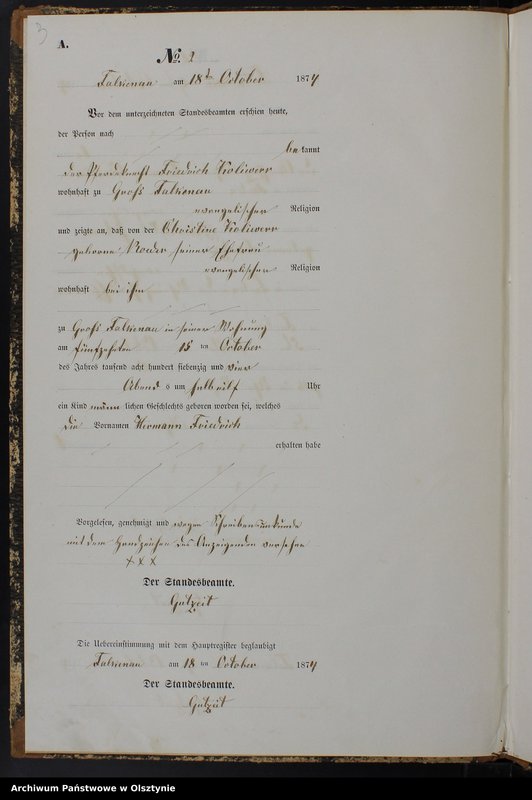 3
A.
No. 2
Falkenau am 18ten October 1874
Vor dem unterzeichneten Standesbeamten erschien heute,
der Person nach
bekannt
der Pferdeknecht Friedrich
wohnhaft zu Groß Falkenau
evangelischer Religion
und zeigte an, daß von der Christine
geborene Roeder seiner Ehefrau
evangelischer Religion
wohnhaft bei ihm
zu Groß Falkenau in seiner Wohnung
am fünfzehnten 15 ten October
des Jahres tausend acht hundert siebenzig und vier
Abends um halb elf Uhr
ein Kind männlichen Geschlechts geboren worden sei, welches
die Vornamen Hermann Friedrich
erhalten habe
Vorgelesen, genehmigt und wegen Schreibensunkunde
mit dem Handzeichen des Anzeigenden versehen
x x x
Der Standesbeamte.
Gutzeit
Die Uebereinstimmung mit dem Hauptregister beglaubigt
Falkenau am 18 ten October 1874
Der Standesbeamte.
Gutzeit
Archiwum Państwowe w Olsztynie